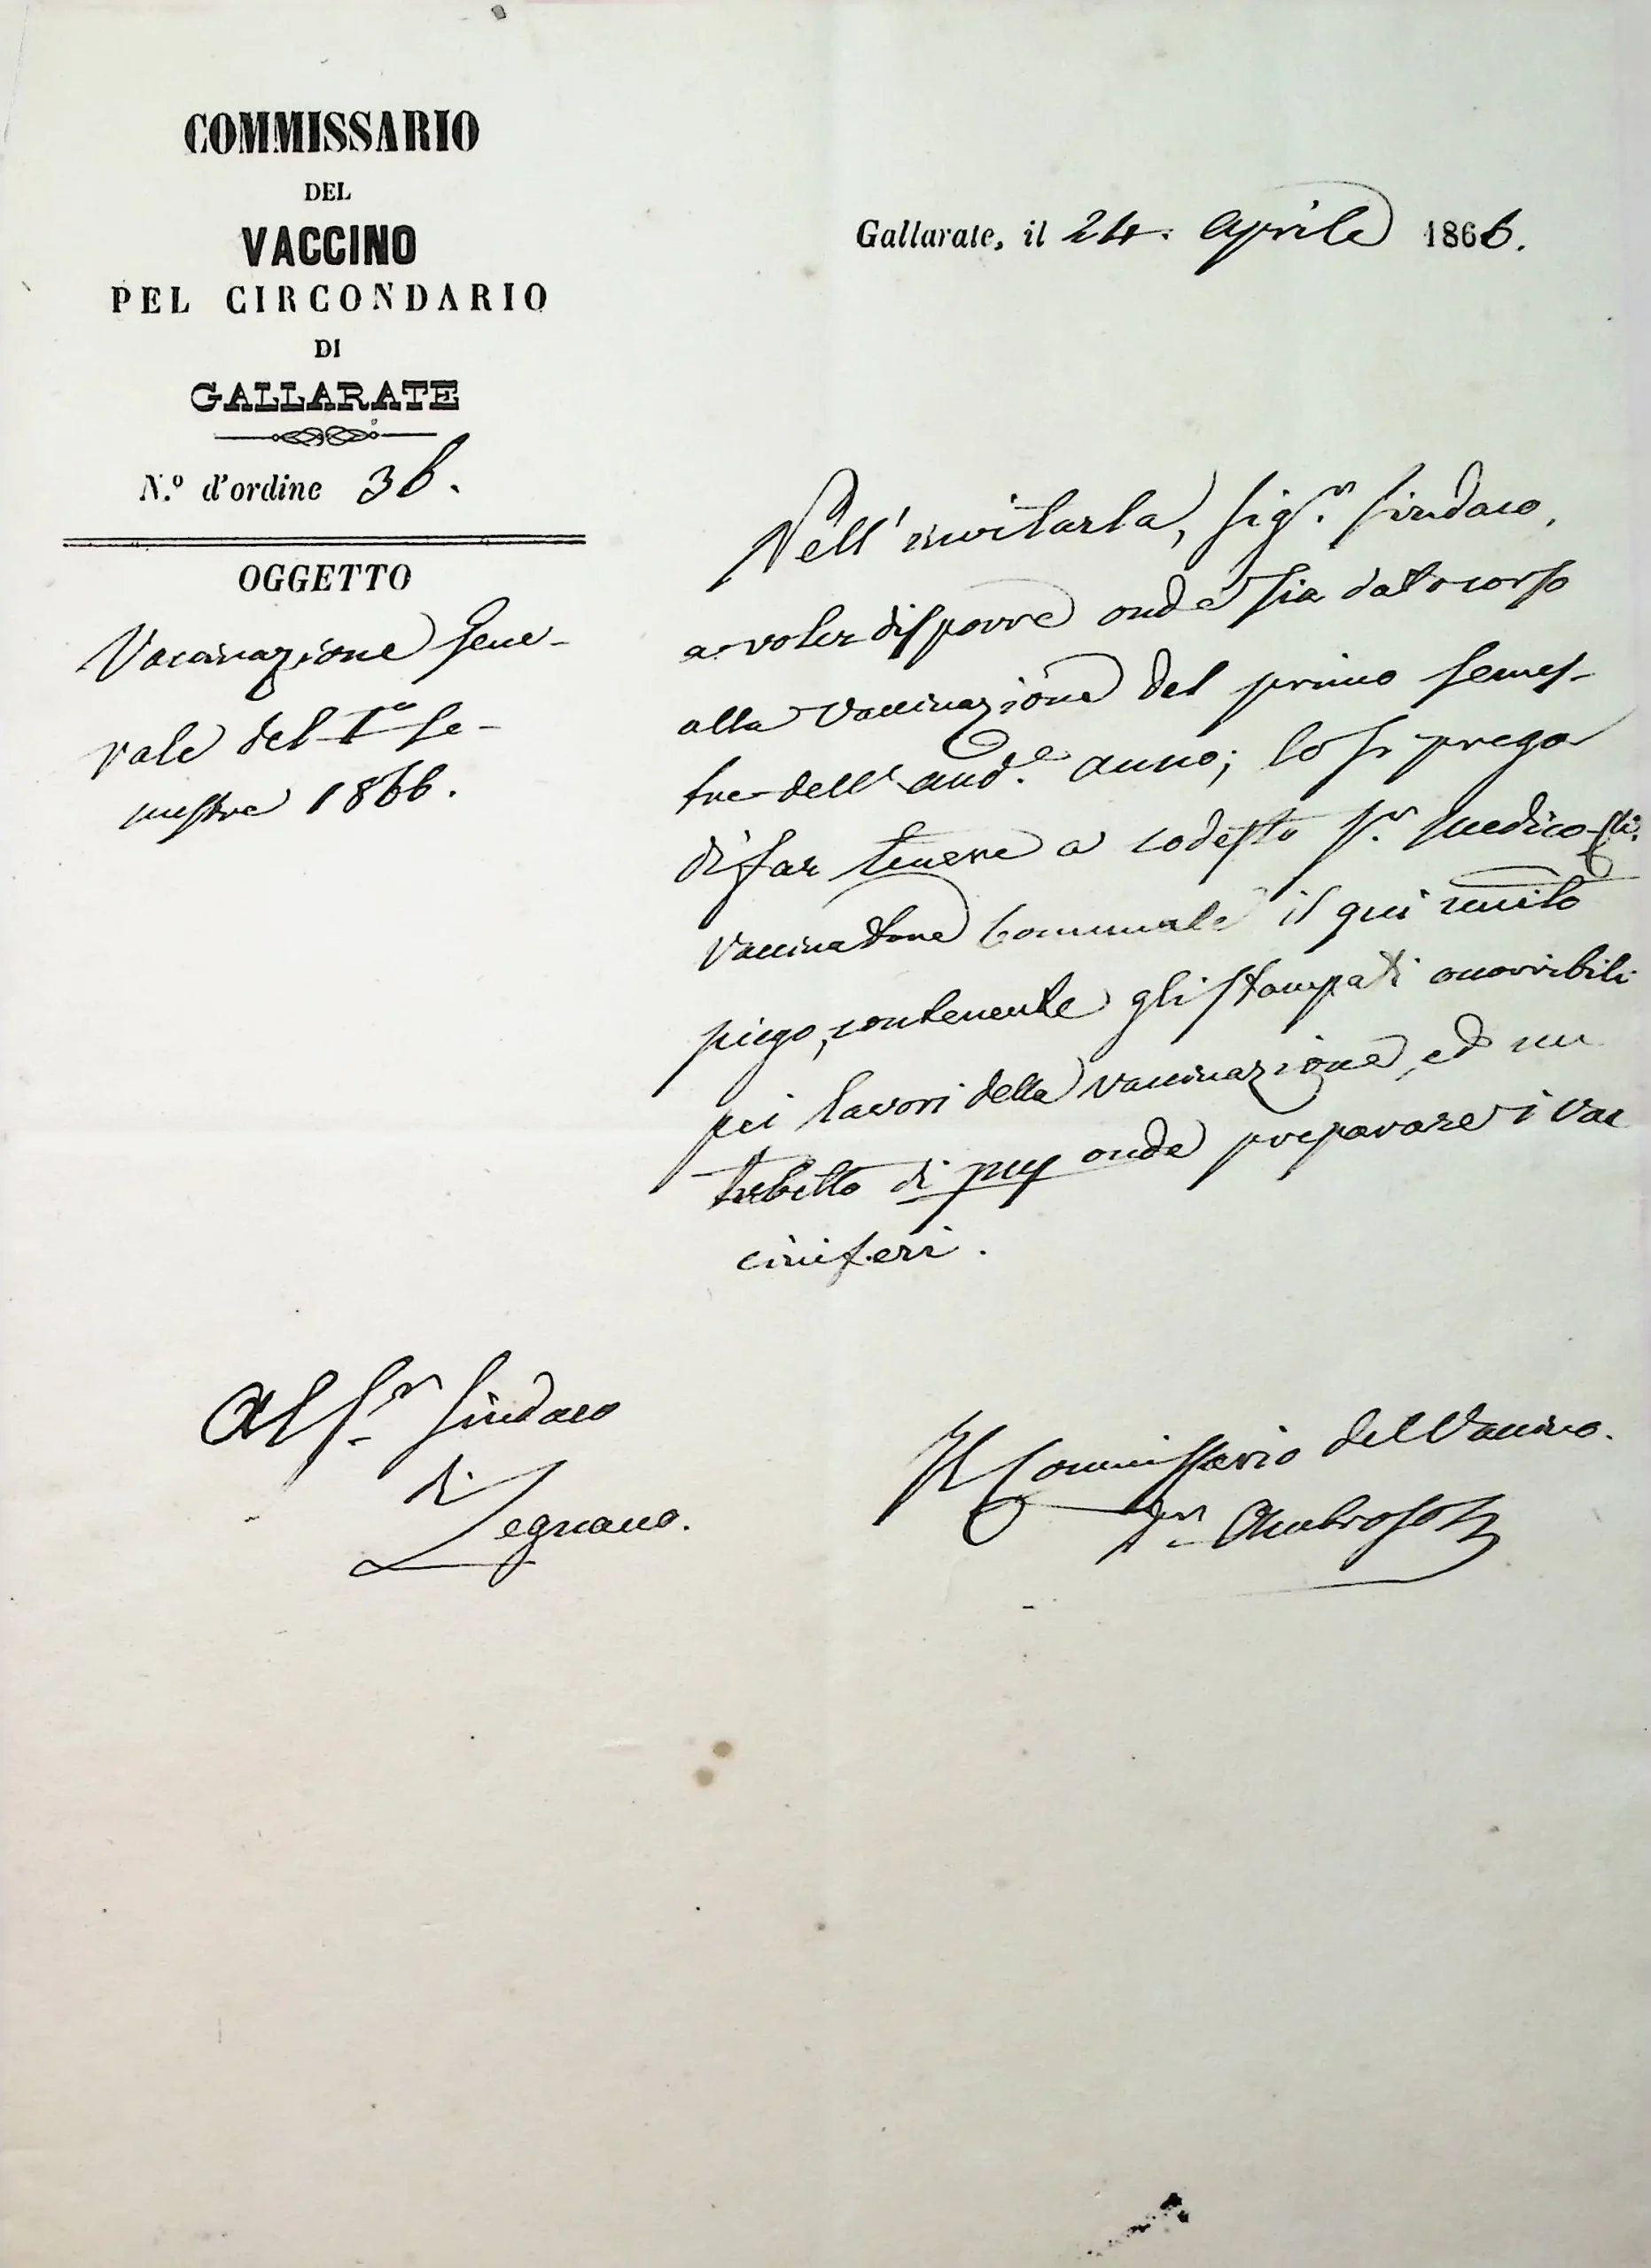 COMMISSARIO
DEL
VACCINO
PEL CIRCONDARIO
DI
GALLARATE
N.º d'ordine 36.
OGGETTO
Vaccinazione Gene-
rale del I° Se-
mestre 1866.
Gallarate, il 24. Aprile 1866.
Nell'invitarla, Sig.r Sindaco,
a voler disporre onde sia dato corso
alla Vaccinazione del primo semes-
tre dell'and.e anno; lo si prega
di far tenere a codesto S.r Medico
Vaccinatore Communale il qui unito
piego, contenente gli stampati occorribili
pei lavori della vaccinazione, ed un
tubetto di pus onde preparare i vac
ciniferi.
Al S.r Sindaco
di
Legnano.
Il Commissario del Vaccino.
D.r Ambrosoli